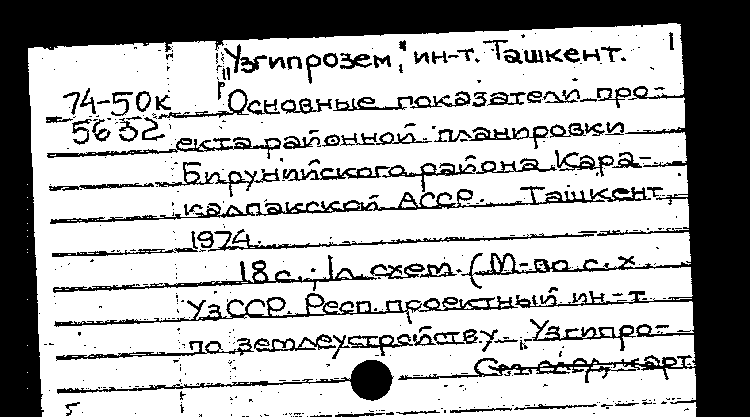 „Узгипрозем", ин-т. Ташкент. 1
74-50к Основные показатели про-
5632 екта районной планировки
Бирунийского района Кара-
калпакской АССР. Ташкент,
1974.
18 с.; 1 л. схем. (М-во с. х.
УзССР. Респ. проектный ин-т
по землеустройству „Узгипро-
См. след. карт.